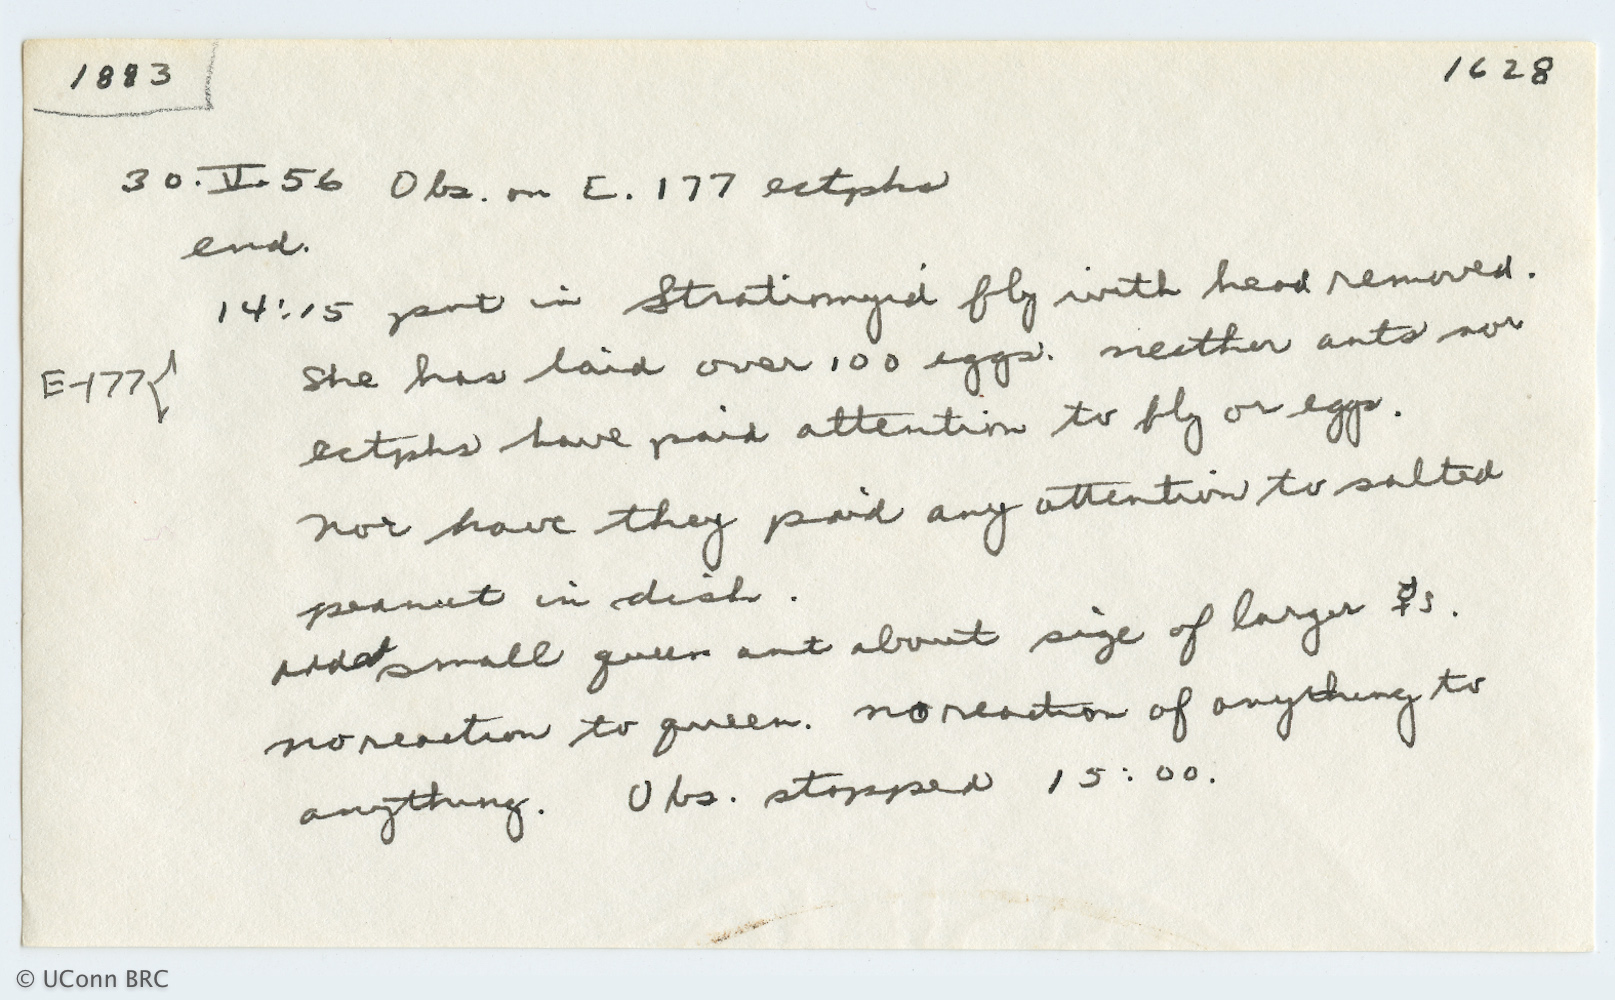 1883
1628
30.V.56 Obs. on E. 177 ectphs
end.
14:15 put in Stratiomyid fly with head removed.
E-177{ She has laid over 100 eggs. neither ants nor
ectphs have paid attention to fly or eggs.
Nor have they paid any attention to salted
peanut in dish.
added small queen ant about size of larger ☿s.
no reaction to queen. no reaction of anything to
anything. Obs. stopped 15:00.
© UConn BRC